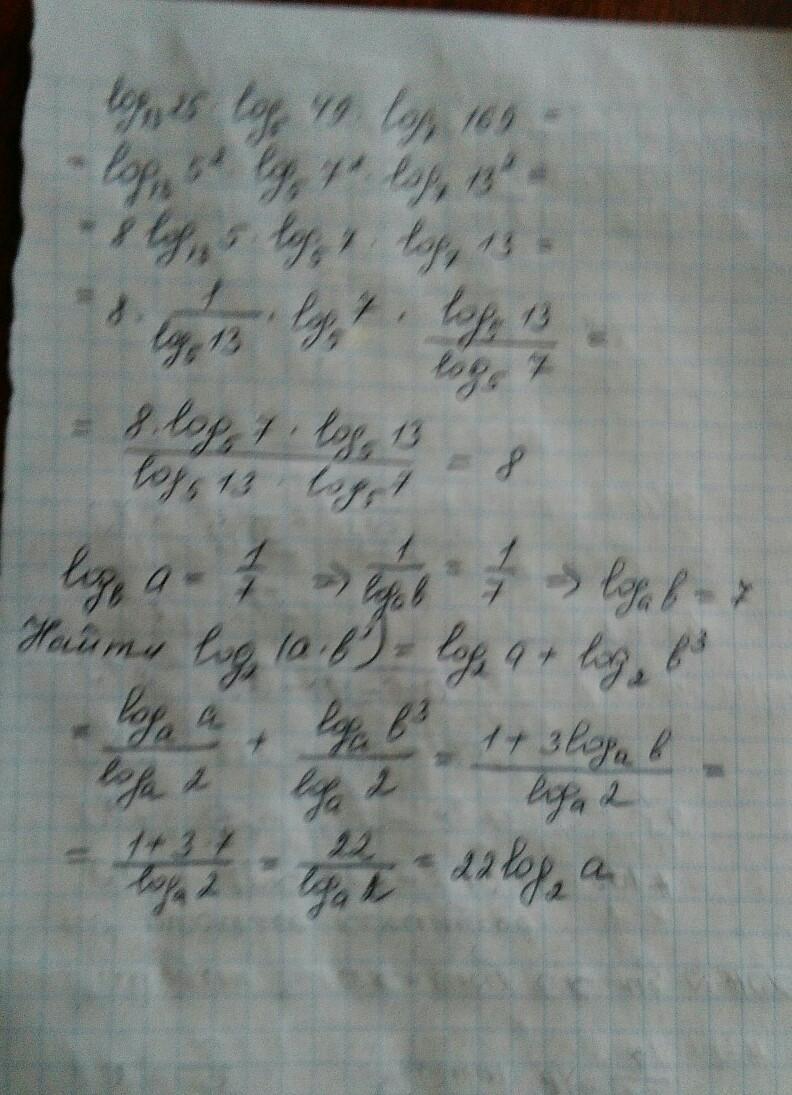 log₁₃ 25 · log₅ 49 · log₇ 169 =
= log₁₃ 5² · log₅ 7² · log₇ 13² =
= 8 log₁₃ 5 · log₅ 7 · log₇ 13 =
= 8 · 1/(log₅ 13) · log₅ 7 · (log₅ 13)/(log₅ 7) =
= (8 · log₅ 7 · log₅ 13)/(log₅ 13 · log₅ 7) = 8
log_b a = 1/7 ⇒ 1/(log_a b) = 1/7 ⇒ log_a b = 7
Найти log₂ (a · b³) = log₂ a + log₂ b³
= (log_a a)/(log_a 2) + (log_a b³)/(log_a 2) = (1 + 3 log_a b)/(log_a 2) =
= (1 + 3 · 7)/(log_a 2) = 22/(log_a 2) = 22 log₂ a